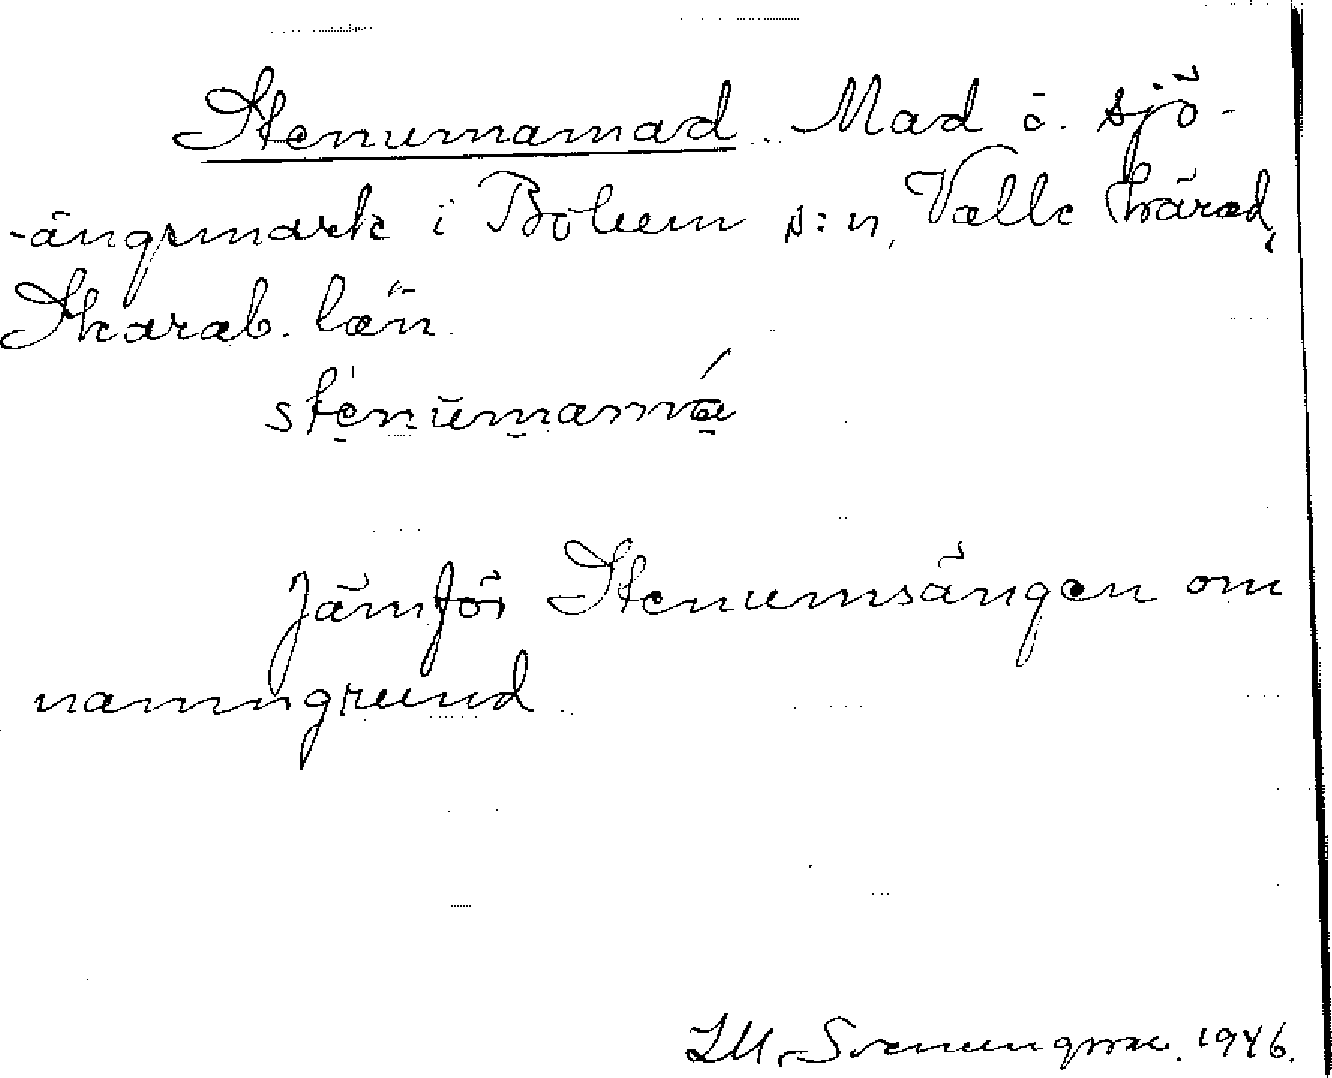 Stenumamad. Mad o. sjö-
-ängsmark i Bolum s:n, Valle härad,
Skarab. län.
stenumamá
Jämför Stenumsängen om
namngrund.
1946.